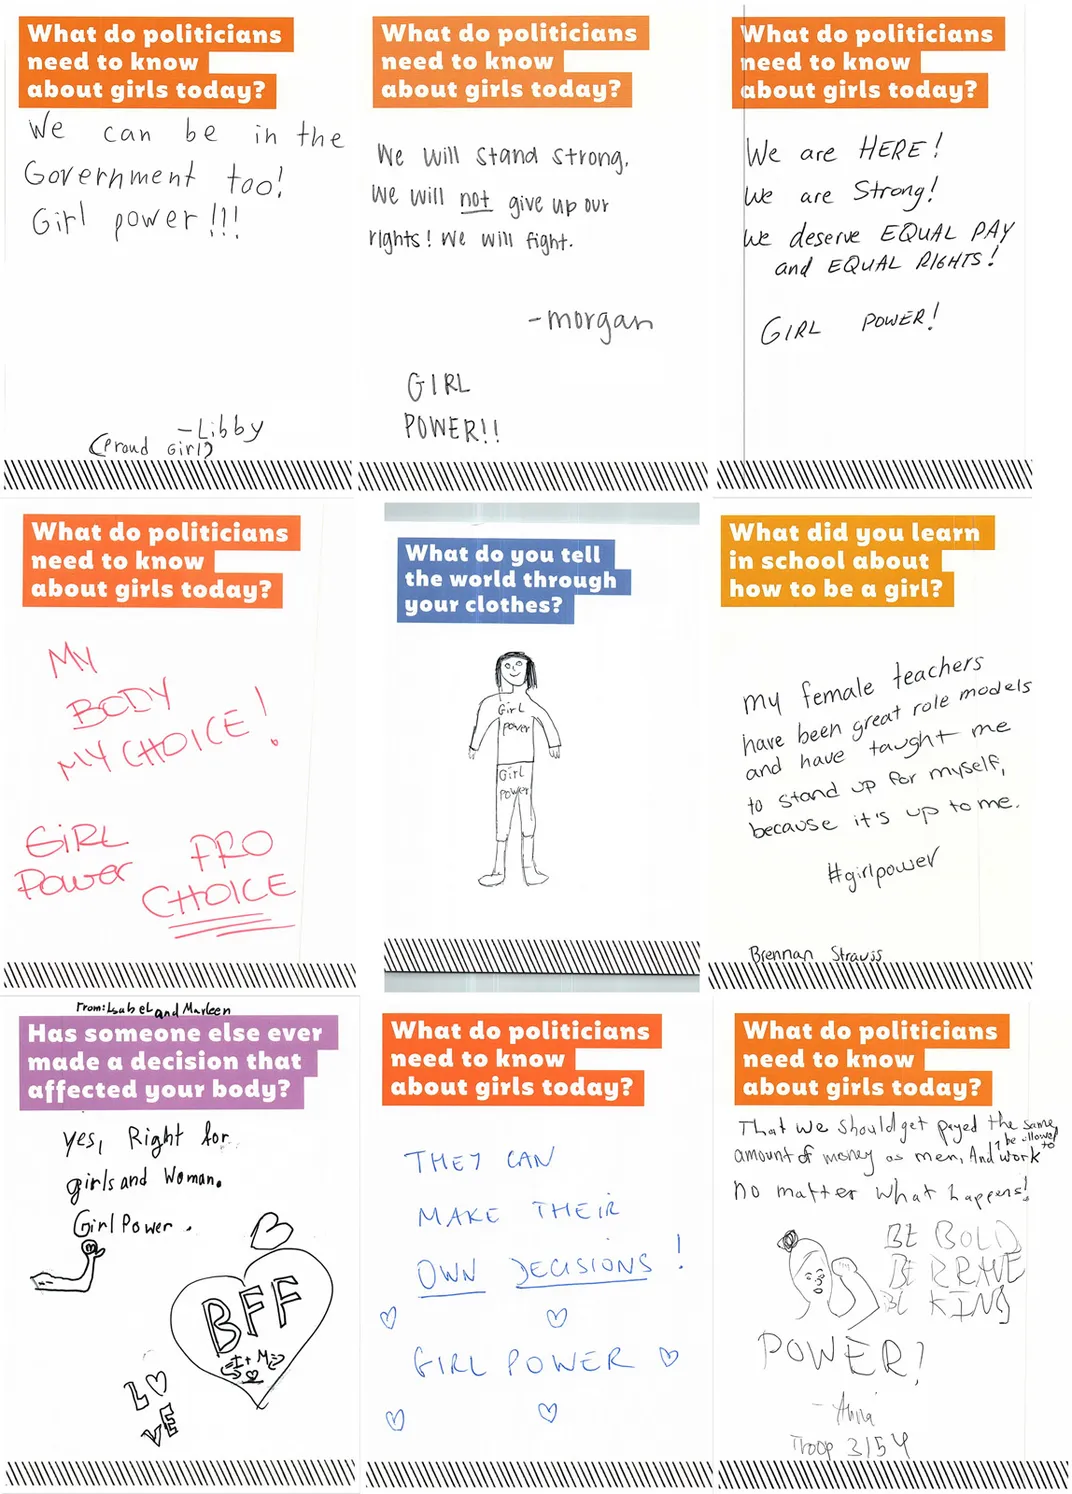 What do politicians
need to know
about girls today?
We can be in the
Government too!
Girl power!!!
-Libby
(Proud Girl)
What do politicians
need to know
about girls today?
We will stand strong.
We will not give up our
rights! We will fight.
-morgan
GIRL
POWER!!
What do politicians
need to know
about girls today?
We are HERE!
We are Strong!
We deserve EQUAL PAY
and EQUAL RIGHTS!
GIRL POWER!
What do politicians
need to know
about girls today?
MY
BODY
MY CHOICE!
GiRL
Power
PRO
CHOICE
What do you tell
the world through
your clothes?
Girl
power
Girl
power
What did you learn
in school about
how to be a girl?
my female teachers
have been great role models
and have taught me
to stand up for myself,
because it's up to me.
#girlpower
Brennan Strauss
From: Isabel and Marleen
Has someone else ever
made a decision that
affected your body?
yes, Right for
girls and Woman.
Girl Power.
BFF
I + M
LO
VE
What do politicians
need to know
about girls today?
THEY CAN
MAKE THEiR
OWN DECISIONS!
GIRL POWER
What do politicians
need to know
about girls today?
That we should get payed the same
amount of money as men, And be allowed to work
no matter what happens!
BE BOLD
BE BRAVE
BE KIND
POWER!
Troop 3154